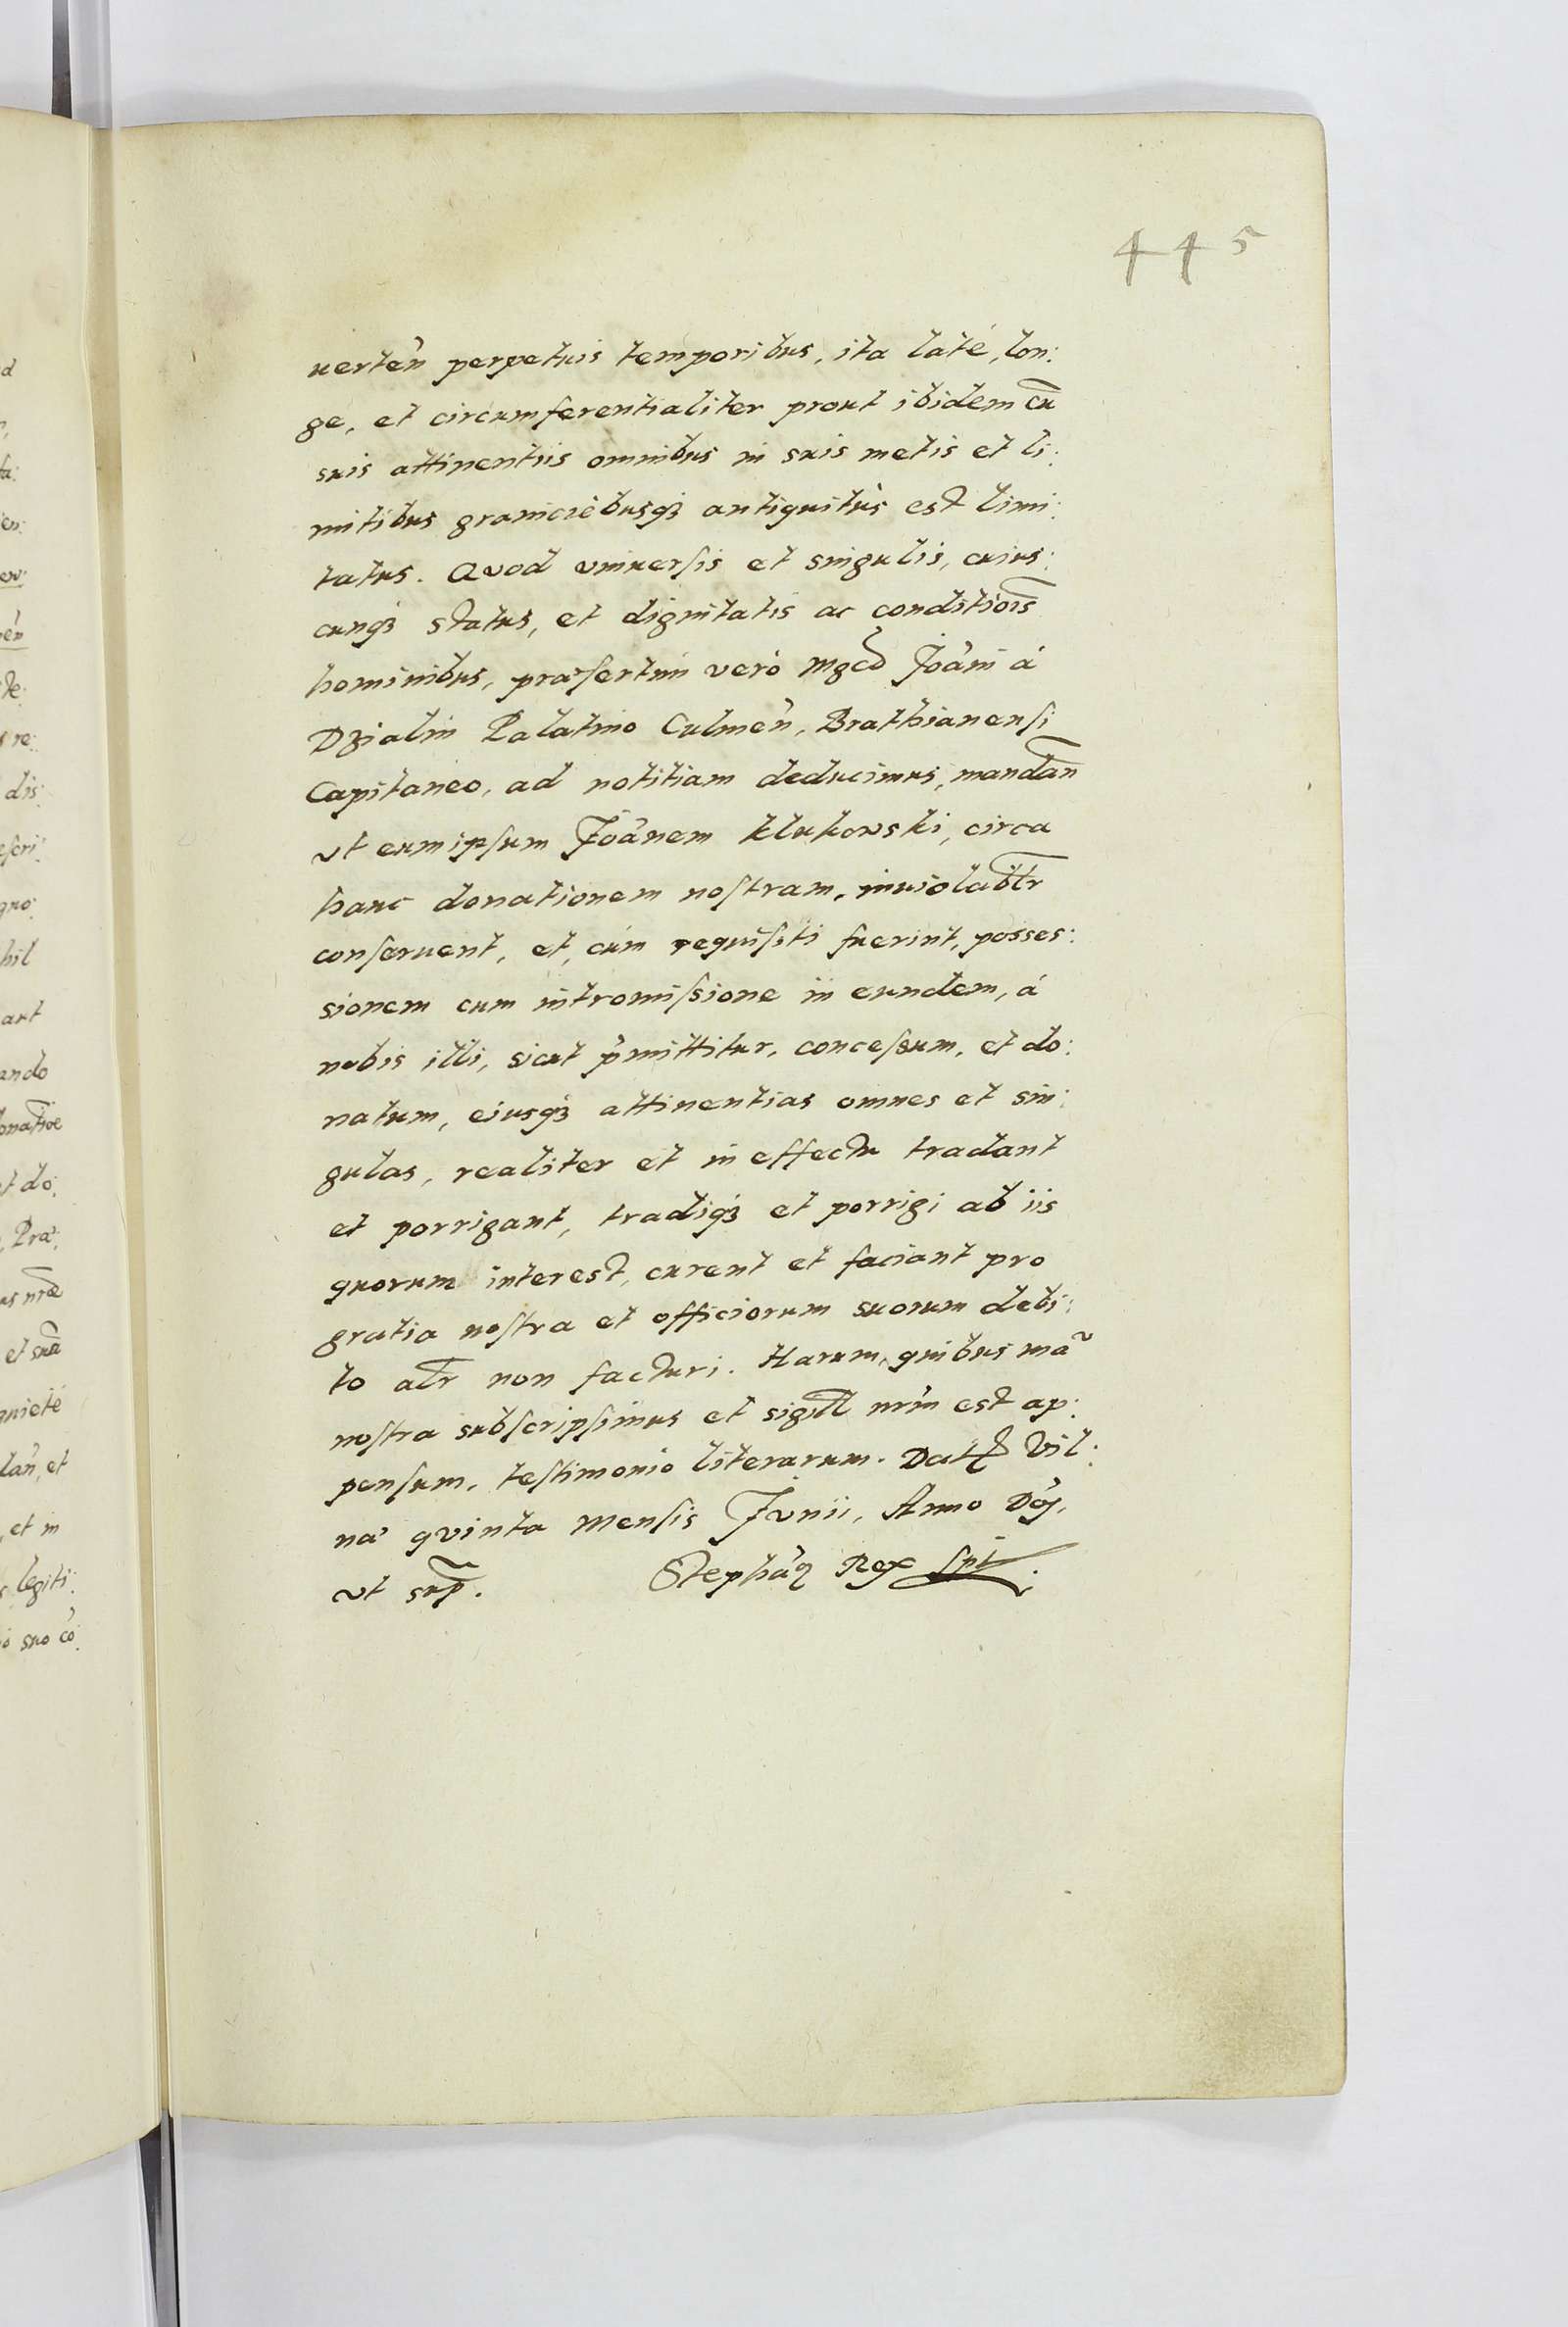 445
uerteñ perpetuis temporibus, ita laté, lon:
ge, et circumferentialiter prout ibidem cũ
suis attinentiis omnibus in suis metis et li:
mitibus graniciebusq₃ antiquitùs est limi:
tatus. Quod vniuersis et singulis, cuius:
cunq₃ status, et dignitatis ac conditiois̃
hominibus, præsertim verò Mgcо Joãni à
Dzialin Palatino Culmeñ, Brathianensi
Capitaneo, ad notitiam deducimus, mandañ
vt eum ipsum Joãnem Klukowski, circa
hanc donationem nostram, inuiolabltr
conseruent, et, cùm requisiti fuerint, posses:
sionem cum intromissione in eundem, à
nobis illi, sicut p̃mittitur, concessum, et do:
natum, eiusq₃ attinentias omnes et sin:
gulas, realiter et in effectu tradant
et porrigant, tradiq₃ et porrigi ab iis
quorum interest, curent et faciant pro
gratia nostra et officiorum suorum debi:
to altr non facturi. Harum, quibus mã
nostra subscripsimus et sigill nrm̃ est ap:
pensum, testimonio literarum. Dat Vil:
næ quinta Mensis Junii, Anno Dnj,
vt sup̃.
Stephãq Rex sst
d
fa:
en:
te:
s re:
dis:
escri:
quo:
hil
aut
ando
onatioe
t do:
Præ:
as nræ
et suã
quietè
lañ, et
et in
legiti:
o suo cõ: